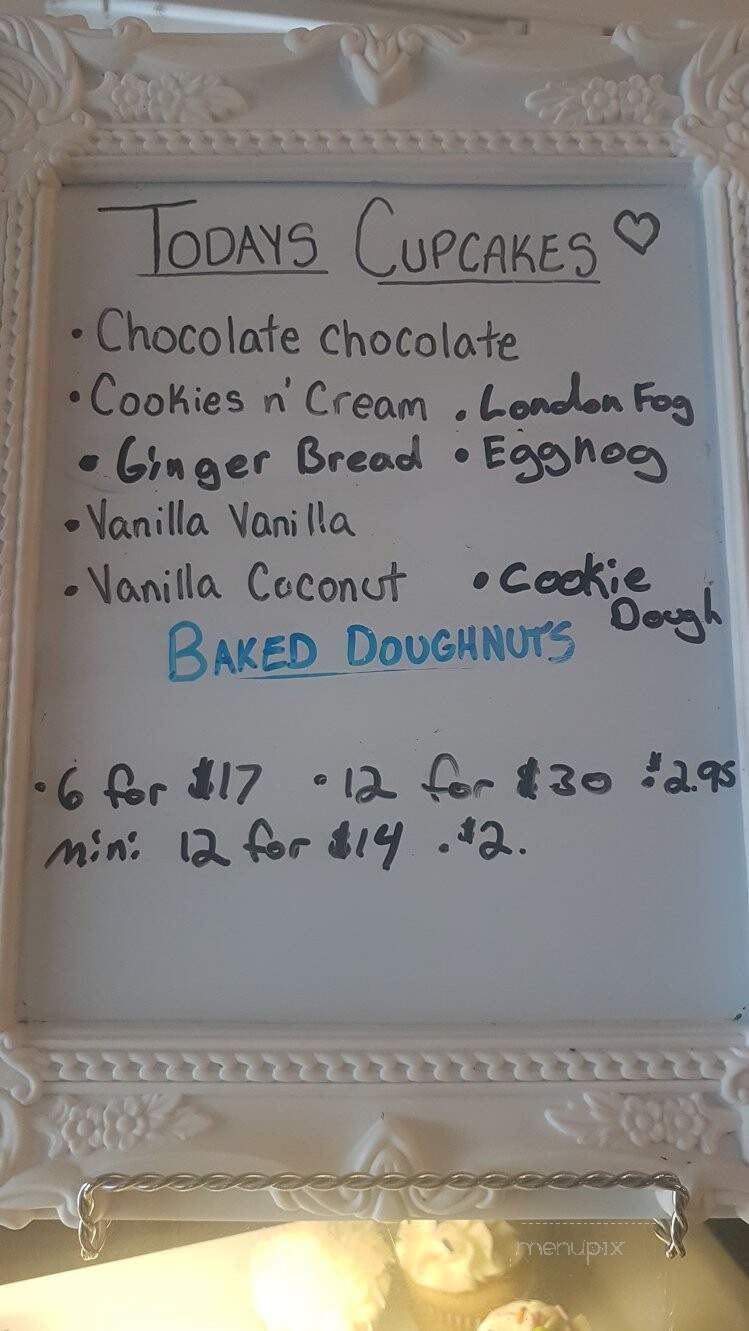 TODAYS CUPCAKES
• Chocolate chocolate
• Cookies n' Cream • London Fog
• Ginger Bread • Eggnog
• Vanilla Vanilla
• Vanilla Coconut • Cookie
Dough
BAKED DOUGHNUTS
• 6 for $17 • 12 for $30 • $2.95
mini 12 for $14 • $2.
menupix